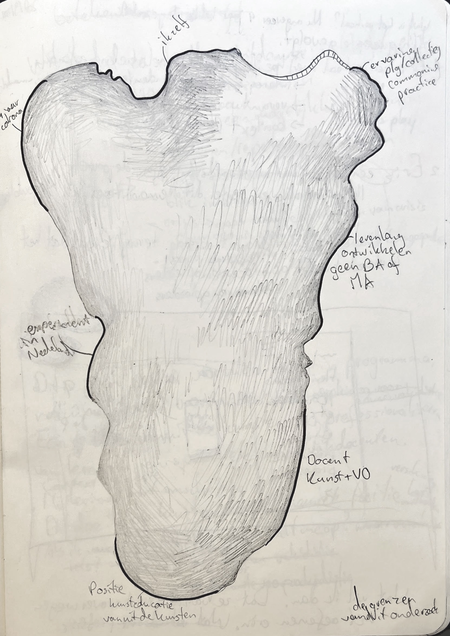 ikzelf
ervaring
plg/collectief
commoning
practice
jaar
corona
levenlang
ontwikkelen
geen BA of
MA
experiment
in
Nederland
Docent
Kunst+VO
Positie
kunsteducatie
vanuit de kunsten
de grenzen
vanuit onderzoek